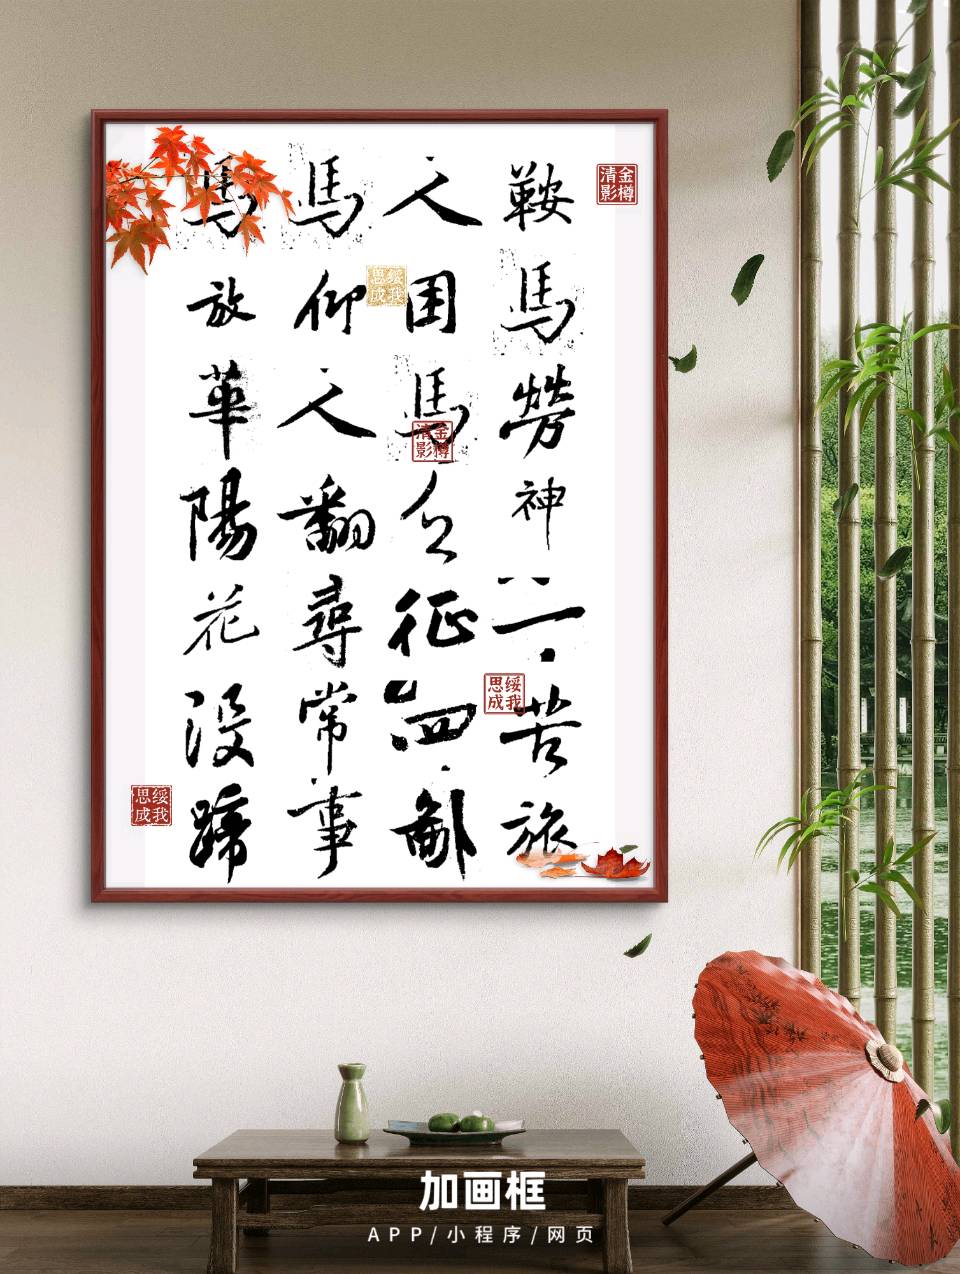 金樽
清影
鞍馬勞神一苦旅
人困馬乏征四鄙
馬仰人翻尋常事
馬放華陽花沒蹄
绥我
思成
金樽
清影
绥我
思成
绥我
思成
加画框
APP/小程序/网页